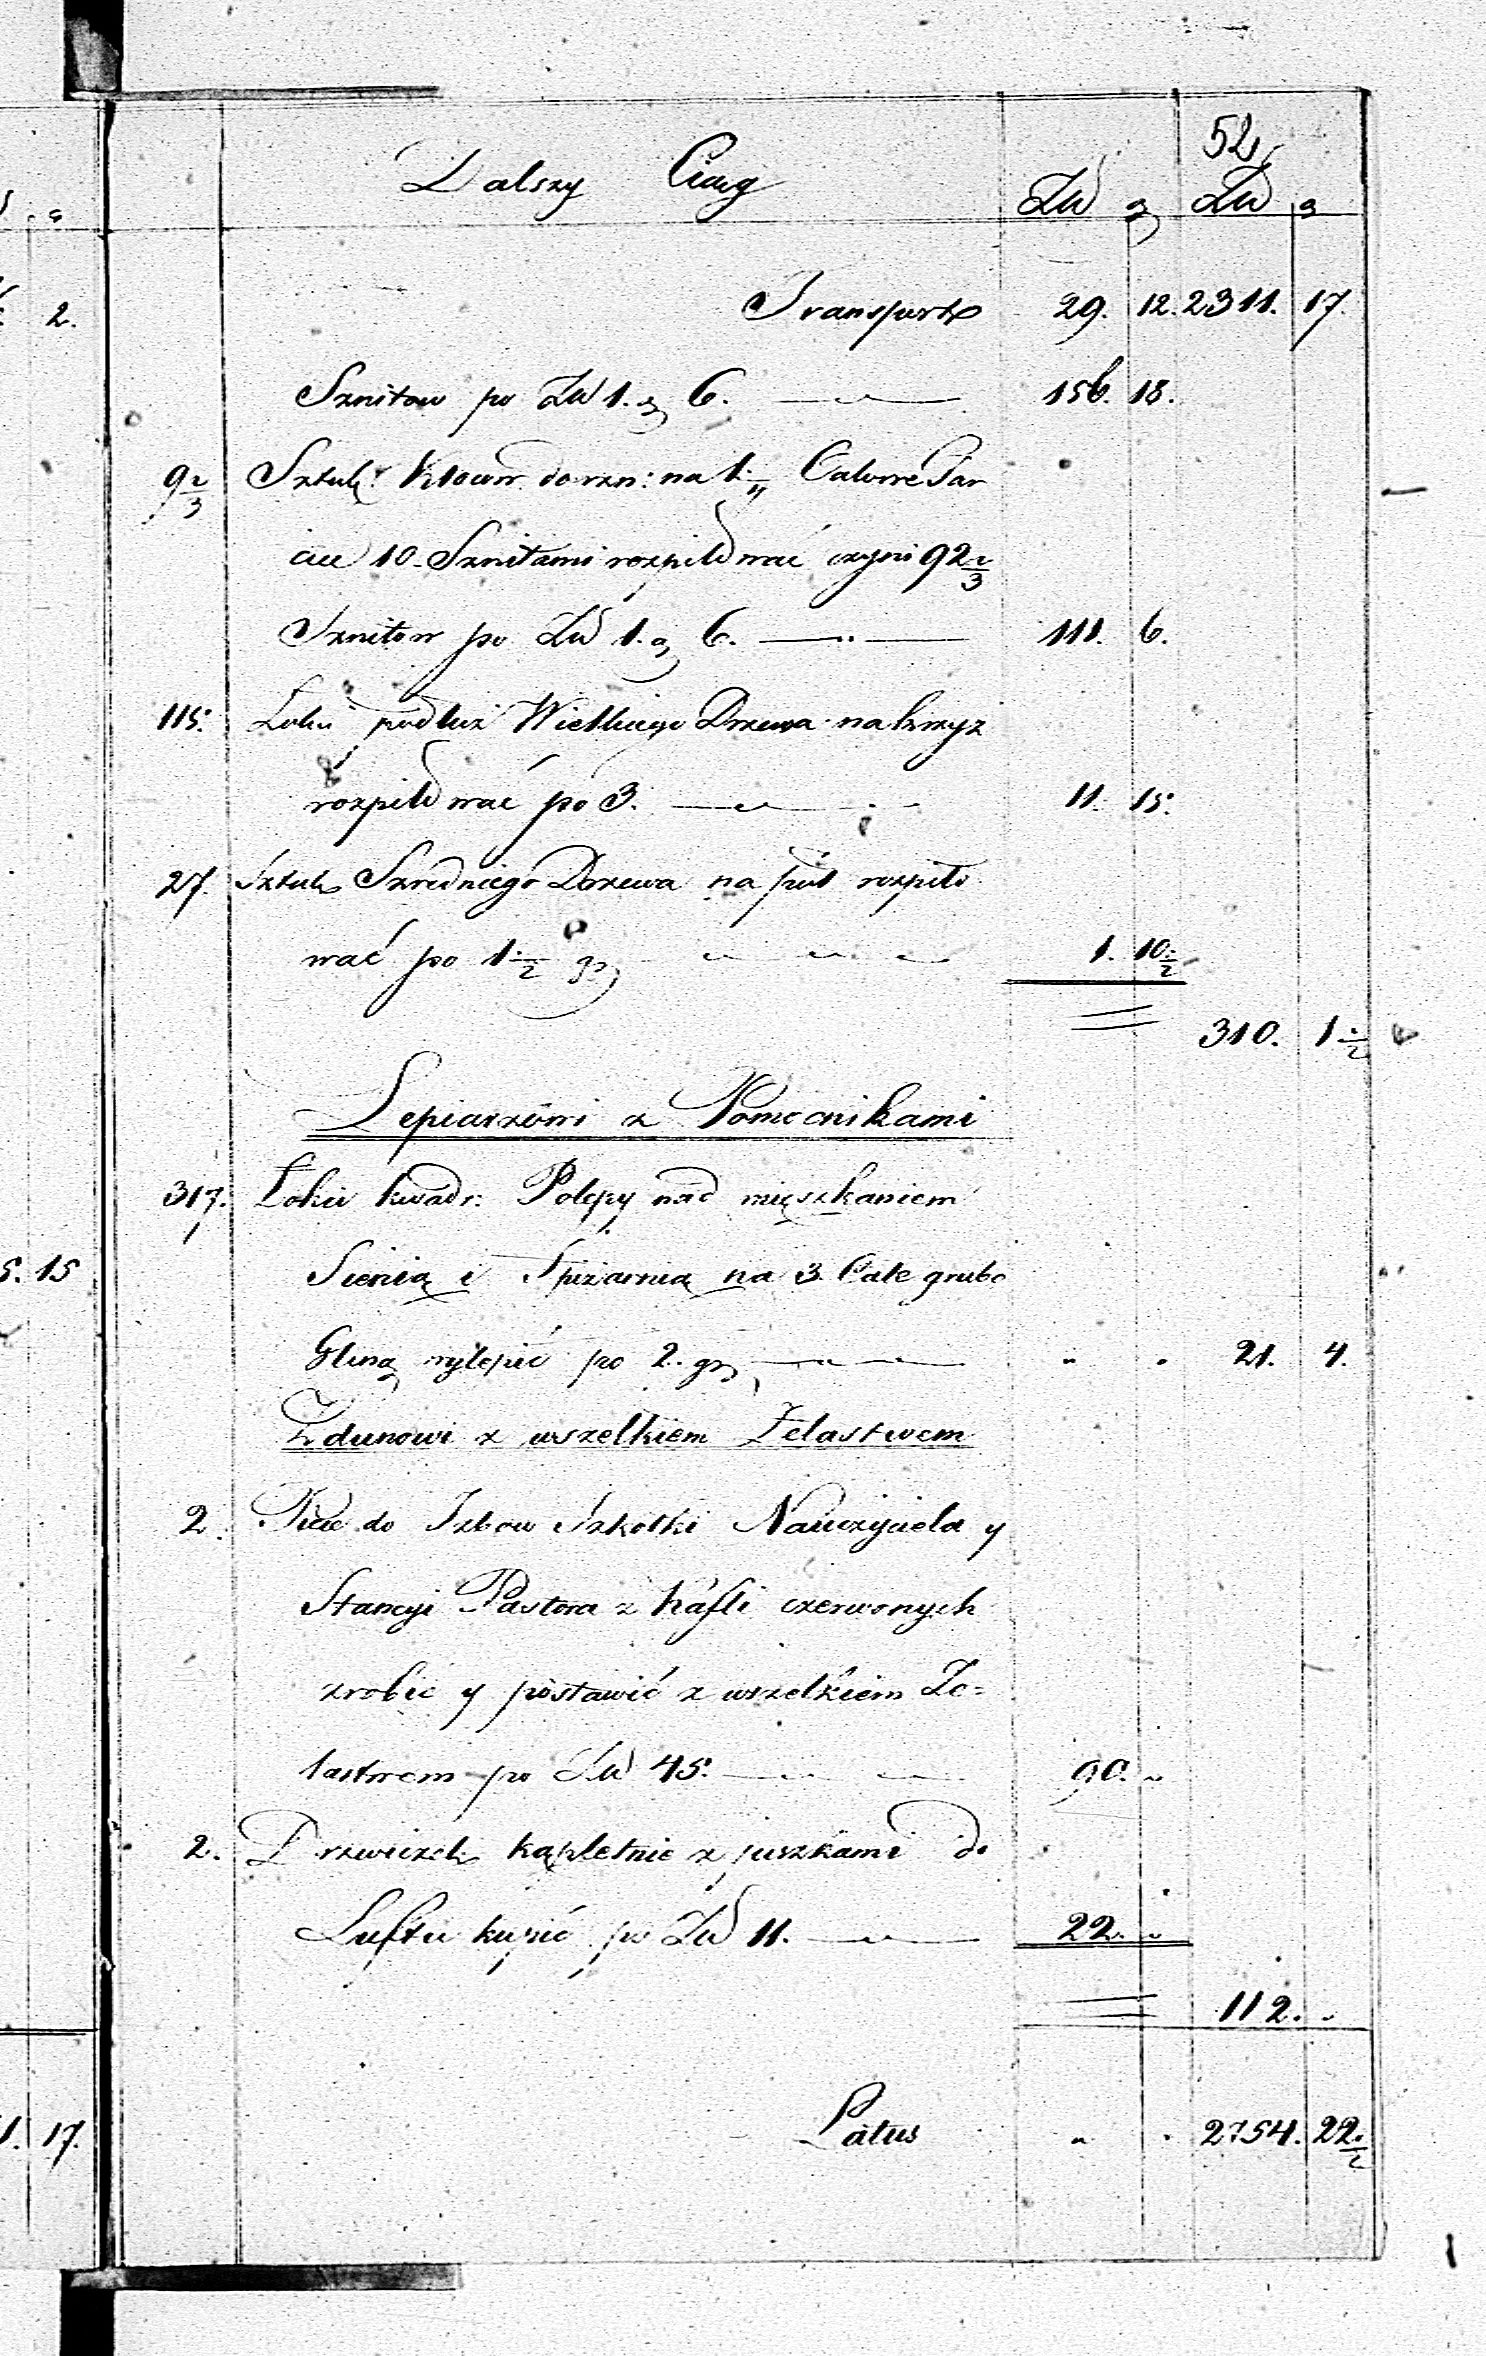 52
Dalszy Ciąg Zł g Zł g
Transport 29. 12. 2311. 17.
Sznitow po Zł 1. g 6. 156. 18.
9 2/3 Sztuk do rzn: na 1 Calowe Tar
cice 10 Sznitami rozpiłować czyni 92 2/3
Sznitow po Zł 1. g 6. 111. 6.
115. Łokci podłuż Wielkiego Drzewa na krzyż
rozpiłować po 3. 11. 15.
27. Sztuk Szredniego Drzewa na puł rozpiło
wać po 1 1/2 gr 1. 10 1/2
310. 1 1/2
Lepiarzowi z Pomocnikami
317. Łokci kwadr: Polepy nad mięszkaniem
Sienią i Spiżarnią na 3 Cale grubo
Gliną wylepić po 2. gr 21. 4.
Zdunowi z wszelkiem Żelastwem
2. Piece do Izbow Szkołki Nauczyciela y
Stancyi Pastora z kafli czerwonych
zrobić y postawić z wszelkiem Że=
lastwem po Zł 45. 90.
2. Drzwiczek kąpletnie z juszkami do
Luftu kupić po Zł 11. 22.
112.
Latus 2754. 22 1/2
2.
5. 15
1. 17.